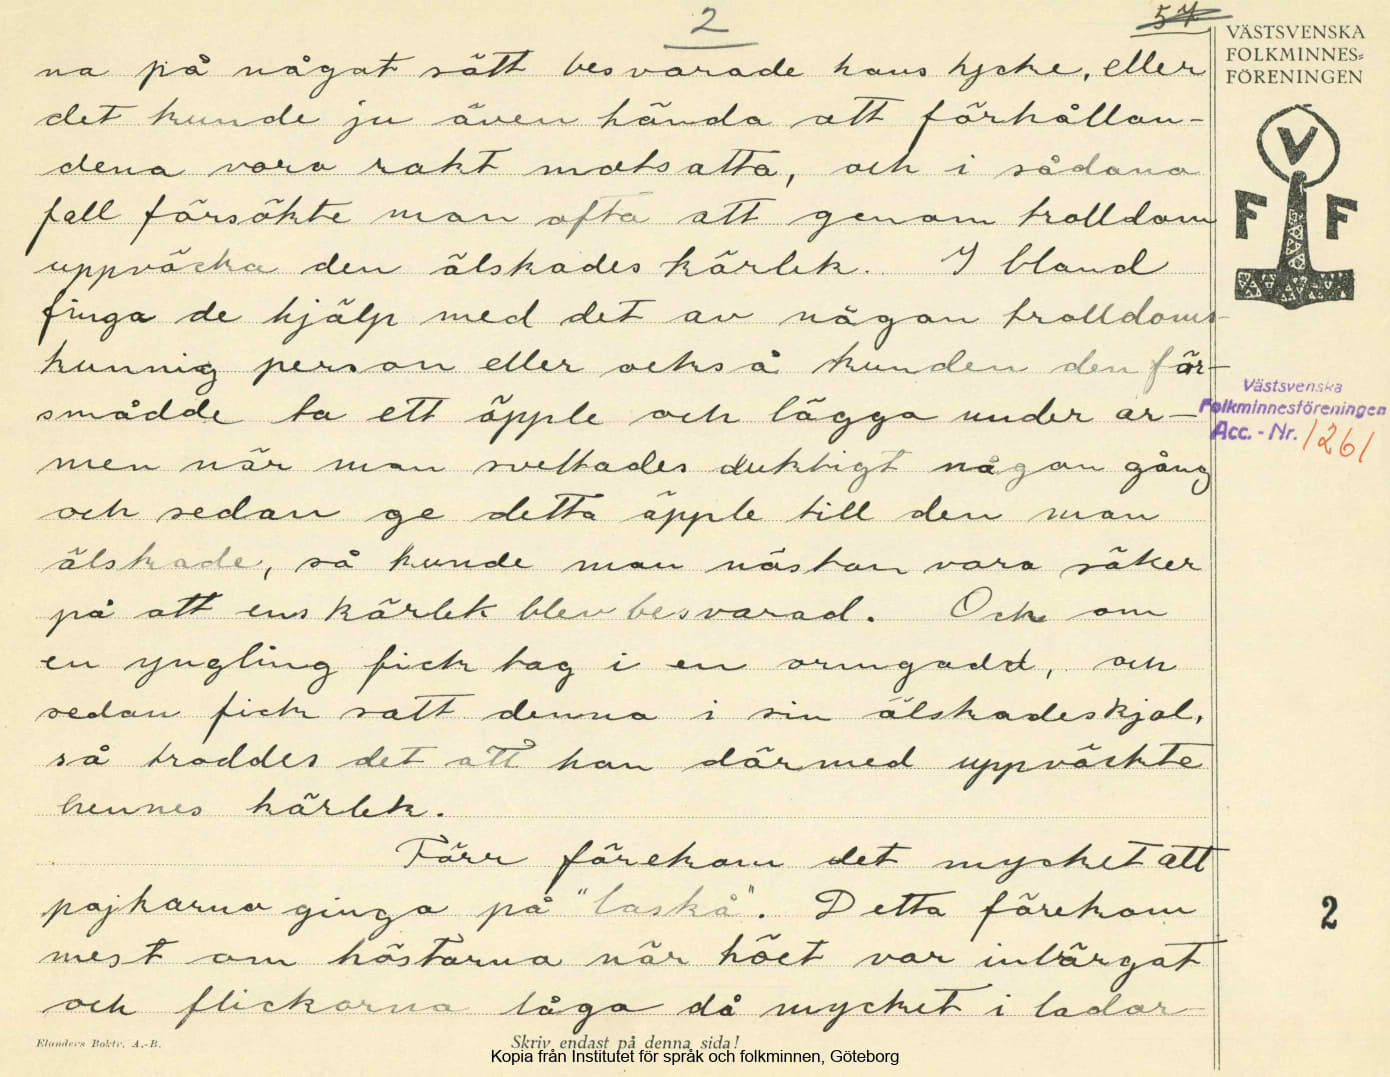 2
57
VÄSTSVENSKA
FOLKMINNES=
FÖRENINGEN
V
F F
na på något sätt besvarade hans tycke, eller
det kunde ju även hända att förhållan-
dena voro rakt motsatta, och i sådana
fall försökte man ofta att genom trolldom
uppväcka den älskades kärlek. I bland
finga de hjälp med det av någon trolldoms-
kunnig person eller också kunden den för-
smådde ta ett äpple och lägga under ar-
men när man svettades duktigt någon gång
och sedan ge detta äpple till den man
älskade, så kunde man nästan vara säker
på att ens kärlek blev besvarad. Och om
en yngling fick tag i en ormgadd, och
sedan fick satt denna i sin älskades kjol,
så troddes det att han därmed uppväckte
hennes kärlek.
Förr förekom det mycket att
pojkarna ginga på "laskå". Detta förekom
mest om höstarna när höet var inbärgat
och flickorna låga då mycket i lador-
Västsvenska
Folkminnesföreningen
Acc. - Nr. 1261
2
Elanders Boktr. A.-B.
Skriv endast på denna sida!
Kopia från Institutet för språk och folkminnen, Göteborg